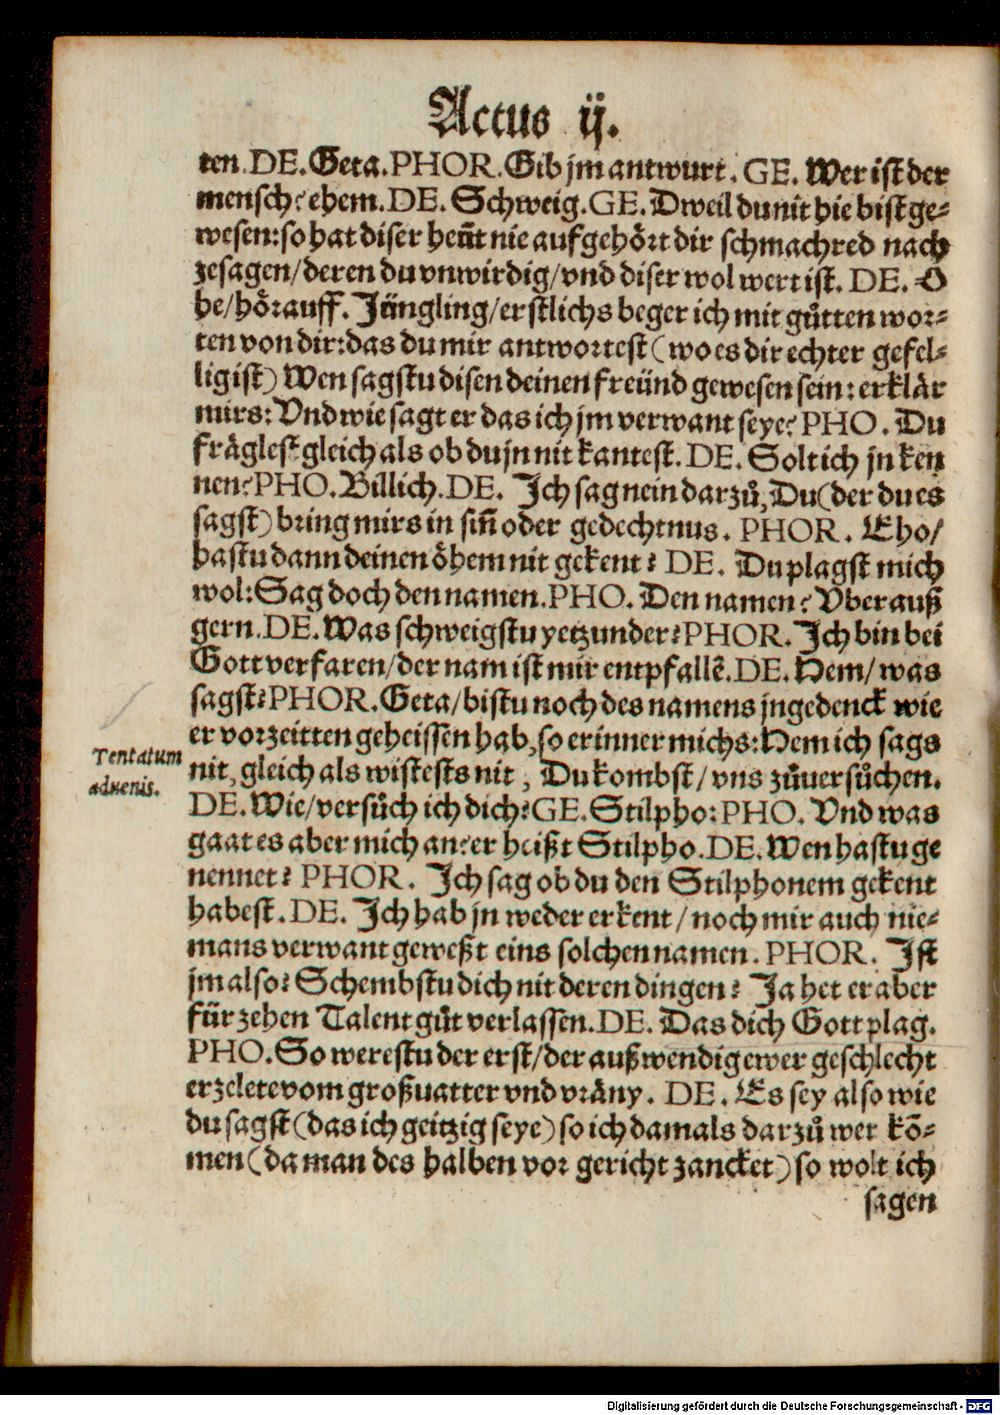 Actus ij.
ten. DE. Geta. PHOR. Gib jm antwurt. GE. Wer ist der
mensch? ehem. DE. Schweig. GE. Dweil du nit hie bist ge-
wesen: so hat diser heüt nie auffgehört dir schmachred nach
zesagen/ deren du vnwirdig/ vnd diser wol wert ist. DE. O
he/ hör auff. Jüngling/ erstlichs beger ich mit gůtten wor-
ten von dir: das du mir antwortest (wo es dir echter gefel-
lig ist) Wen sagstu disen deinen freünd gewesen sein: erklär
mirs: Vnd wie sagt er das ich jm verwant seye? PHO. Du
fräglest gleich als ob du jn nit kantest. DE. Solt ich jn ken
nen? PHO. Billich. DE. Jch sag nein darzů, Du (der du es
sagst) bring mirs in siñ oder gedechtnus. PHOR. Eho/
hastu dann deinen öhem nit gekent? DE. Du plagst mich
wol: Sag doch den namen. PHO. Den namen? Vberauß
gern. DE. Was schweigstu yetzunder? PHOR. Jch bin bei
Gott verfaren/ der nam ist mir entpfallē. DE. Hem/ was
sagst? PHOR. Geta/ bistu noch des namens jngedenck wie
er vorzeitten geheissen hab, so erinner michs: Hem ich sags
nit, gleich als wistests nit, Du kombst/ vns zůuersůchen.
DE. Wie/ versůch ich dich? GE. Stilpho: PHO. Vnd was
gaat es aber mich an? er heißt Stilpho. DE. Wen hastu ge
nennet? PHOR. Jch sag ob du den Stilphonem gekent
habest. DE. Jch hab jn weder erkent/ noch mir auch nie-
mans verwant geweßt eins solchen namen. PHOR. Jst
jm also? Schembstu dich nit deren dingen? Ja het er aber
für zehen Talent gůt verlassen. DE. Das dich Gott plag.
PHO. So werestu der erst/ der außwendig ewer geschlecht
erzelete vom großuatter vnd vräny. DE. Es sey also wie
du sagst (das ich geitzig seye) so ich damals darzů wer kō-
men (da man des halben vor gericht zancket) so wolt ich
sagen
Tentatum
aduenis.
Digitalisierung gefördert durch die Deutsche Forschungsgemeinschaft - DFG